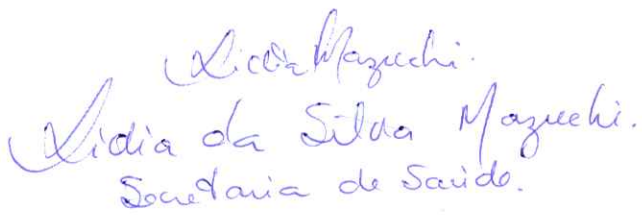 Lidia Mazucchi.
Lidia da Silva Mazucchi.
Secretaria de Saúde.